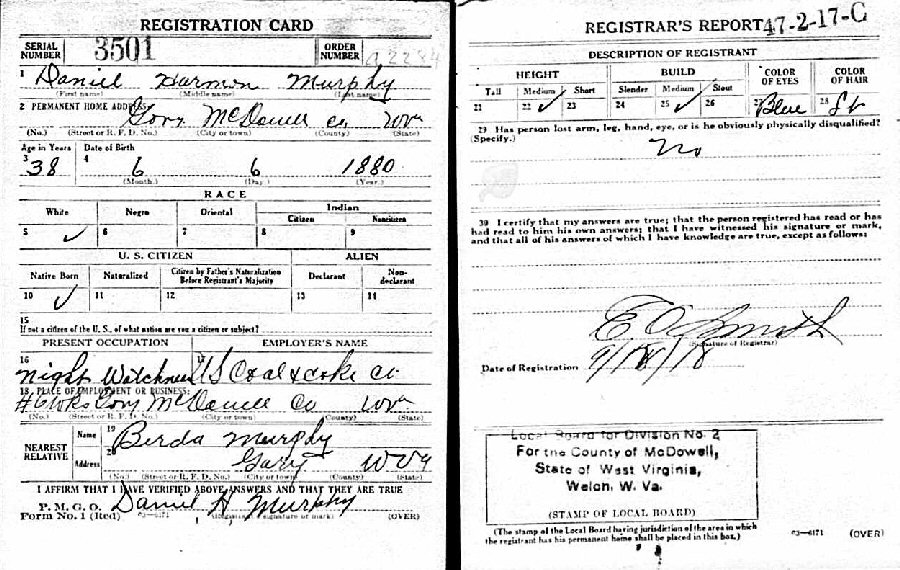 REGISTRATION CARD
SERIAL NUMBER 3501 ORDER NUMBER
1 Daniel Harmon Murphy
(First name) (Middle name) (Last name)
2 PERMANENT HOME ADDRESS:
Gary McDowell Co WVa
(No.) (Street or R. F. D. No.) (City or town) (County) (State)
Age in Years Date of Birth
3 38 4 6 6 1880
(Month.) (Day.) (Year.)
RACE
White Negro Oriental Indian
Citizen Noncitizen
5 ✓ 6 7 8 9
U. S. CITIZEN ALIEN
Native Born Naturalized Citizen by Father's Naturalization Before Registrant's Majority Declarant Non-declarant
10 ✓ 11 12 13 14
15
If not a citizen of the U. S., of what nation are you a citizen or subject?
PRESENT OCCUPATION EMPLOYER'S NAME
16 Night Watchman 17 U S Coal & Coke Co.
18 PLACE OF EMPLOYMENT OR BUSINESS:
#6 Wks Gary McDowell Co WVa
(No.) (Street or R. F. D. No.) (City or town) (County) (State)
NEAREST RELATIVE
Name 19 Birda Murphy
Address 20 Gary WVa
(No.) (Street or R. F. D. No.) (City or town) (County) (State)
I AFFIRM THAT I HAVE VERIFIED ABOVE ANSWERS AND THAT THEY ARE TRUE
P. M. G. O.
Form No. 1 (Red) Daniel H Murphy
(Registrant's signature or mark) (OVER)
REGISTRAR'S REPORT 47-2-17-C
DESCRIPTION OF REGISTRANT
HEIGHT BUILD COLOR OF EYES COLOR OF HAIR
Tall Medium Short Slender Medium Stout
21 22 ✓ 23 24 25 ✓ 26 27 Blue 28
29 Has person lost arm, leg, hand, eye, or is he obviously physically disqualified?
(Specify.)
No
30 I certify that my answers are true; that the person registered has read or has
had read to him his own answers; that I have witnessed his signature or mark,
and that all of his answers of which I have knowledge are true, except as follows:
E O Smith
(Signature of Registrar)
Date of Registration
Local Board for Division No. 2
For the County of McDowell,
State of West Virginia,
Welch, W. Va.
(STAMP OF LOCAL BOARD)
(The stamp of the Local Board having jurisdiction of the area in which
the registrant has his permanent home shall be placed in this box.)
03-6171 (OVER)